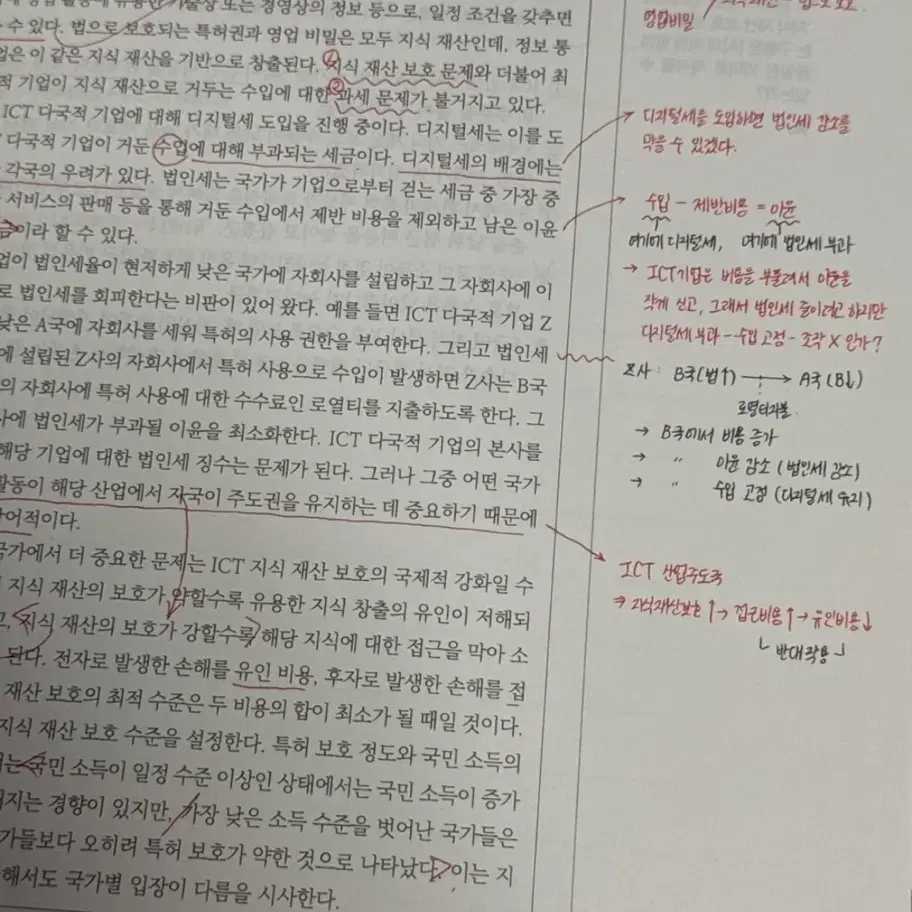 유용한 기술상 또는 경영상의 정보 등으로, 일정 조건을 갖추면
수 있다. 법으로 보호되는 특허권과 영업 비밀은 모두 지식 재산인데, 정보 통
업은 이 같은 지식 재산을 기반으로 창출된다. ① 지식 재산 보호 문제와 더불어 최
적 기업이 지식 재산으로 거두는 수입에 대한 ② 과세 문제가 불거지고 있다.
ICT 다국적 기업에 대해 디지털세 도입을 진행 중이다. 디지털세는 이를 도
다국적 기업이 거둔 수입에 대해 부과되는 세금이다. 디지털세의 배경에는
각국의 우려가 있다. 법인세는 국가가 기업으로부터 걷는 세금 중 가장 중
서비스의 판매 등을 통해 거둔 수입에서 제반 비용을 제외하고 남은 이윤
금이라 할 수 있다.
업이 법인세율이 현저하게 낮은 국가에 자회사를 설립하고 그 자회사에 이
로 법인세를 회피한다는 비판이 있어 왔다. 예를 들면 ICT 다국적 기업 Z
낮은 A국에 자회사를 세워 특허의 사용 권한을 부여한다. 그리고 법인세
에 설립된 Z사의 자회사에서 특허 사용으로 수입이 발생하면 Z사는 B국
의 자회사에 특허 사용에 대한 수수료인 로열티를 지출하도록 한다. 그
사에 법인세가 부과될 이윤을 최소화한다. ICT 다국적 기업의 본사를
해당 기업에 대한 법인세 징수는 문제가 된다. 그러나 그중 어떤 국가
활동이 해당 산업에서 자국이 주도권을 유지하는 데 중요하기 때문에
어적이다.
국가에서 더 중요한 문제는 ICT 지식 재산 보호의 국제적 강화일 수
지식 재산의 보호가 약할수록 유용한 지식 창출의 유인이 저해되
고, 지식 재산의 보호가 강할수록 해당 지식에 대한 접근을 막아 소
된다. 전자로 발생한 손해를 유인 비용, 후자로 발생한 손해를 접
재산 보호의 최적 수준은 두 비용의 합이 최소가 될 때일 것이다.
지식 재산 보호 수준을 설정한다. 특허 보호 정도와 국민 소득의
서는 국민 소득이 일정 수준 이상인 상태에서는 국민 소득이 증가
해지는 경향이 있지만, 가장 낮은 소득 수준을 벗어난 국가들은
가들보다 오히려 특허 보호가 약한 것으로 나타났다. 이는 지
해서도 국가별 입장이 다름을 시사한다.
영업비밀
디지털세을 도입하면 법인세 감소를
막을 수 있겠다.
수입 - 제반비용 = 이윤
여기에 디지털세, 여기에 법인세 부과
→ ICT기업은 비용을 부풀려서 이윤을
작게 신고, 그래서 법인세 줄이려고 하지만
디지털세 부과 - 수입 고정 - 조작 X 인가?
Z사 : B국(법↑) → A국(B↓)
로열티지불
→ B국에서 비용 증가
→ 〃 이윤 감소 (법인세 감소)
→ 〃 수입 고정 (디지털세 유리)
ICT 산업주도국
⇒ 지식재산보호↑ → 접근비용↑ → 유인비용↓
└ 반대작용 ┘